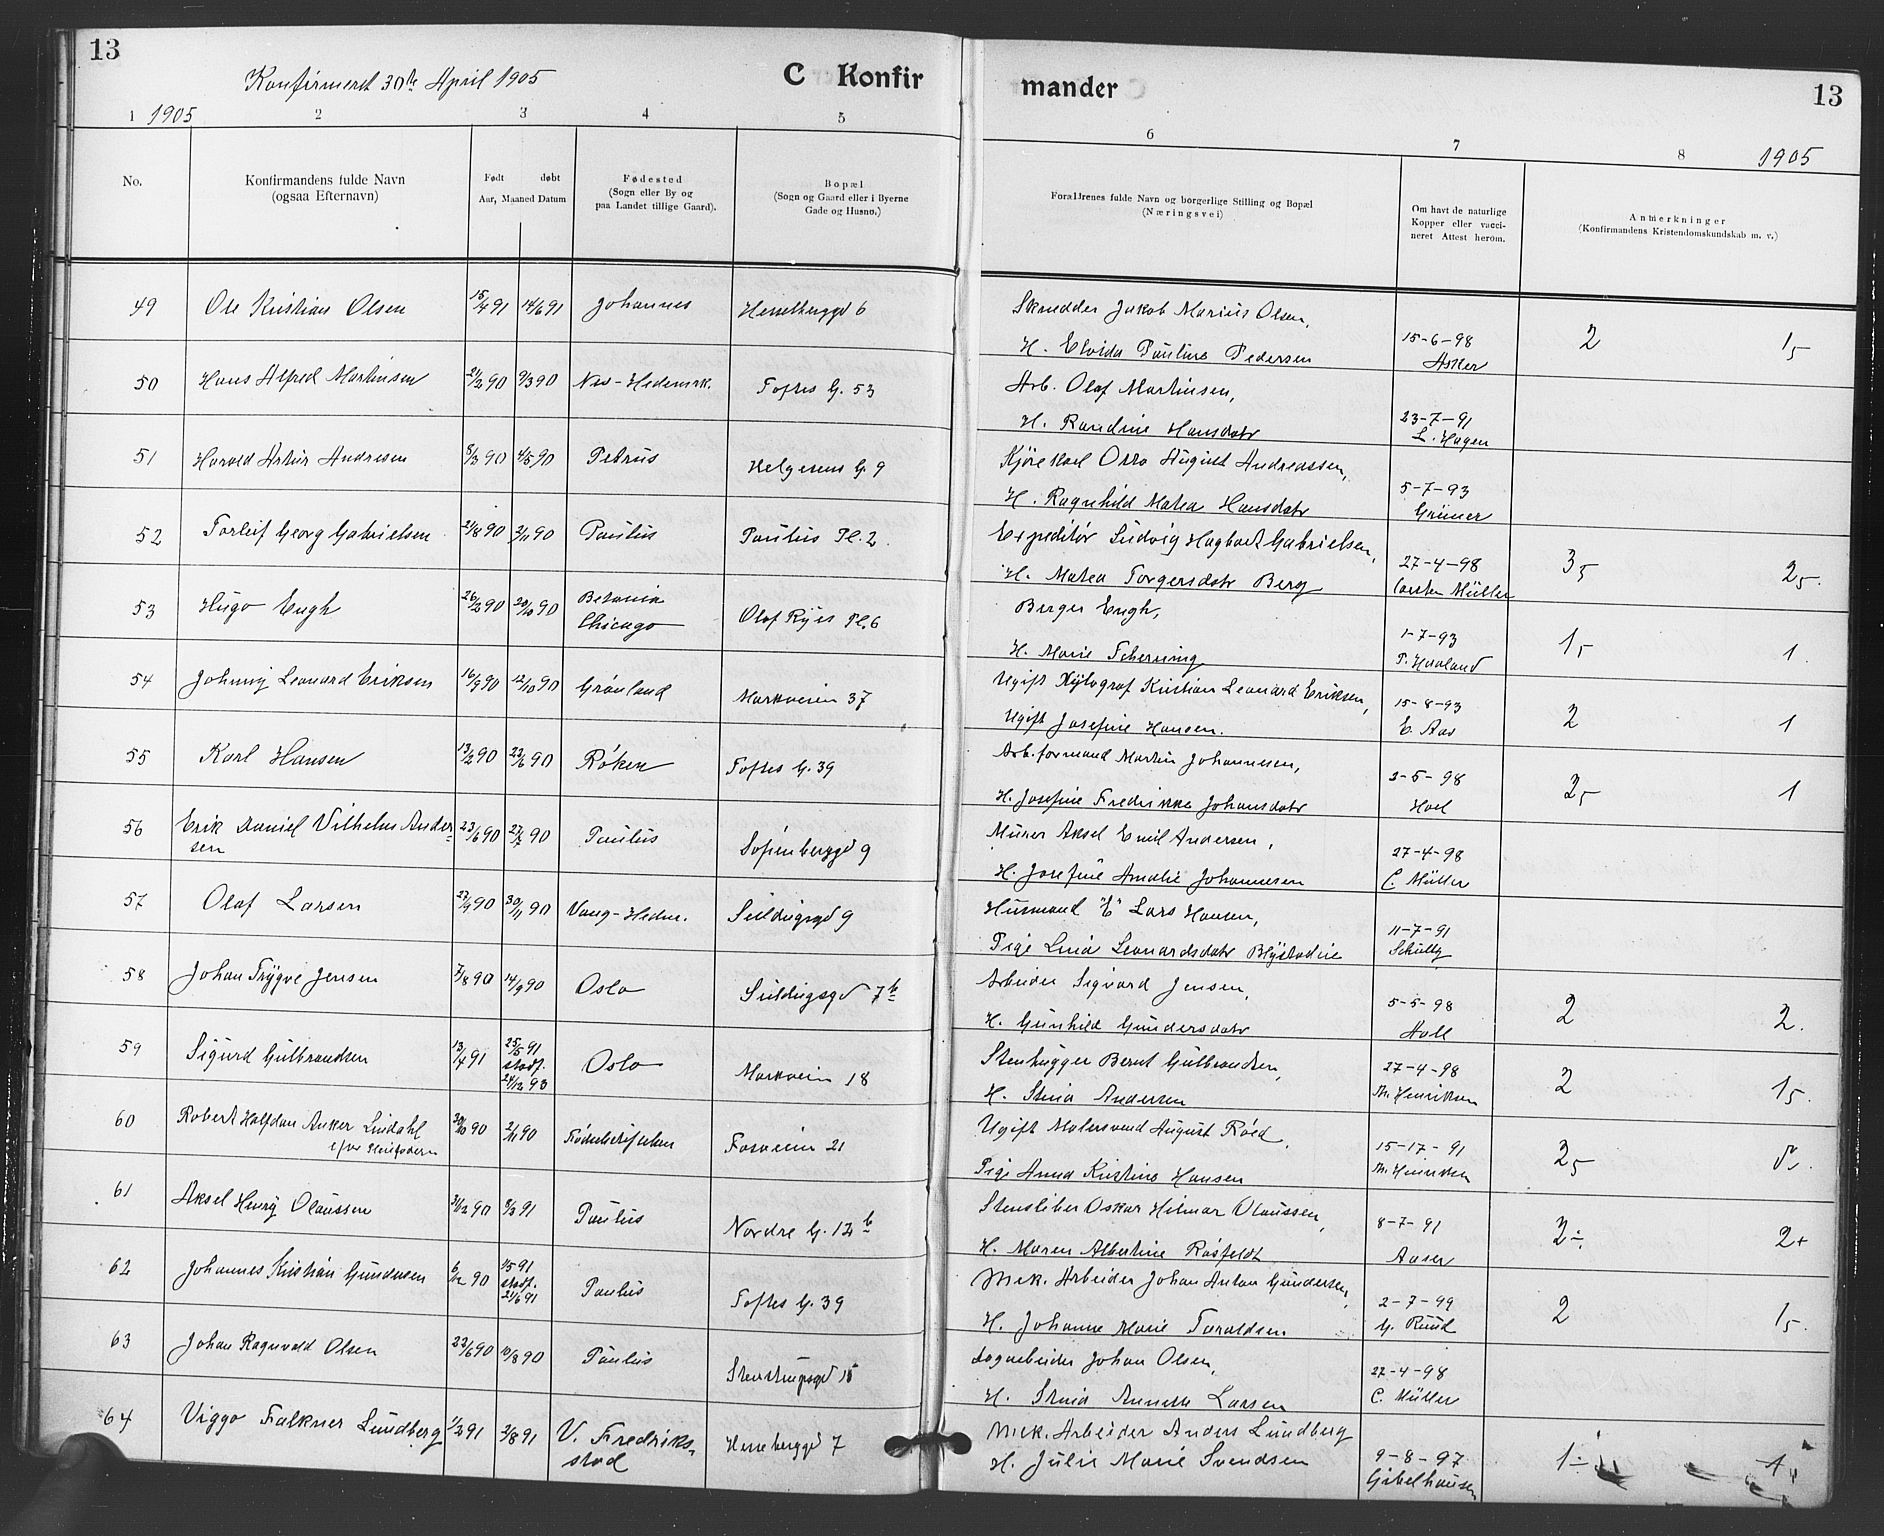 13
Konfirmeret 30te April 1905
C Konfir
mander
13
1 1905 2 3 4 5
6 7 8 1905
No.
Konfirmandens fulde Navn
(ogsaa Efternavn)
Født døbt
Aar, Maaned Datum
Fødested
(Sogn eller By og
paa Landet tillige Gaard).
Bopæl
(Sogn og Gaard eller i Byerne
Gade og Husno.)
Forældrenes fulde Navn og borgerlige Stilling og Bopæl
(Næringsvei)
Om havt de naturlige
Kopper eller vacci-
neret Attest herom.
Anmerkninger
(Konfirmandens Kristendomskundskab m. v.)
49 Ole Kristian Olsen 15/4 91 14/6 91 Johannes Hesselberggd 6
Skrædder Jakob Marius Olsen,
H. Elvida Pauline Pedersen 15-6-98 Asker 2 15
50 Hans Alfred Martinsen 21/2 90 9/3 90 Nes-Hedemrk. Toftes G. 53
Arb. Olaf Martinsen,
H. Randine Hansdatr 23-7-91 L. Hagen
51 Harald Artur Andresen 8/3 90 4/5 90 Petrus Helgesens G. 9
Kjørekarl Otto August Andreassen,
H. Ragnhild Matea Hansdatr 5-7-93 Grüner
52 Torleif Georg Gabrielsen 21/8 90 2/11 90 Paulus Paulus Pl. 2.
Expeditør Ludvig Hagbart Gabrielsen,
H. Matea Torgersdatr Berg 27-4-98 Carsten Müller 35 25.
53 Hugo Engh 26/2 90 20/10 90 Betania Chicago Olaf Ryes Pl. 6
Birger Engh,
H. Marie Scherning 1-7-93 T. Haaland 15 1.
54 Johnny Leonard Eriksen 16/9 90 12/10 90 Grønland Markveien 37
Ugift Xylograf Kristian Leonard Eriksen,
Ugift Josefine Hansen. 15-8-93 E. Aas 2 1
55 Karl Hansen 13/2 90 22/6 90 Røken Toftes G. 39
Arb.formand Martin Johannesen,
H. Josefine Fredrikke Johansdatr 3-5-98 Hoel 25 1
56 Erik Daniel Vilhelm Ander-
sen 23/6 90 27/7 90 Paulus Sofienberggd 9
Murer Aksel Emil Andersen,
H. Josefine Amalie Johannesen 27-4-98 C. Müller
57 Olaf Larsen 27/9 90 30/11 90 Vang-Hedm. Seildugsgd 9
Husmand "E" Lars Hansen,
Pige Lina Leonardsdatr Blystadeie 11-7-91 Schultz
58 Johan Trygve Jensen 7/8 90 14/9 90 Oslo Seildugsgd 7b
Arbeider Sigvard Jensen,
H. Gunhild Gundersdatr 5-5-98 Holl 2 2.
59 Sigurd Gulbrandsen 13/4 91 25/5 91 stadf. 24/12 93 Oslo Markveien 18
Stenhugger Bernt Gulbrandsen,
H. Stina Andersen 27-4-98 Th. Henriksen 2 15.
60 Robert Halfdan Anker Lindahl
efter Pleiefaderen 30/10 90 2/11 90 Fødselsstiftelsen Fosveien 21
Ugift Malersvend August Røed,
Pige Anna Kristine Hansen 15-17-91 Th. Henriksen 25
61 Aksel Henry Olaussen 31/12 90 8/3 91 Paulus Nordre G. 12b
Stensliber Oskar Hilmar Olaussen,
H. Maren Albertine Røsfeldt 8-7-91 Aaser 2÷ 2+
62 Johannes Kristian Gundersen 6/12 90 1/5 91 stadf. 21/6 91 Paulus Toftes G. 39
Mek. Arbeider Johan Anton Gundersen,
H. Johanne Marie Taraldsen 2-7-99 G. Ruud 2 15.
63 Johan Ragnvald Olsen 22/6 90 10/8 90 Paulus Stenstrupsgd 15
Løgnarbeider Johan Olsen,
H. Stina Annette Larsen 27-4-98 C. Müller
64 Viggo Falkner Lundberg 1/2 91 2/8 91 V. Fredriks-
stad Hesselberggd 7
Mek. Arbeider Anders Lundberg
H. Julie Marie Svendsen 9-8-97 Gibelhausen 1÷ 1